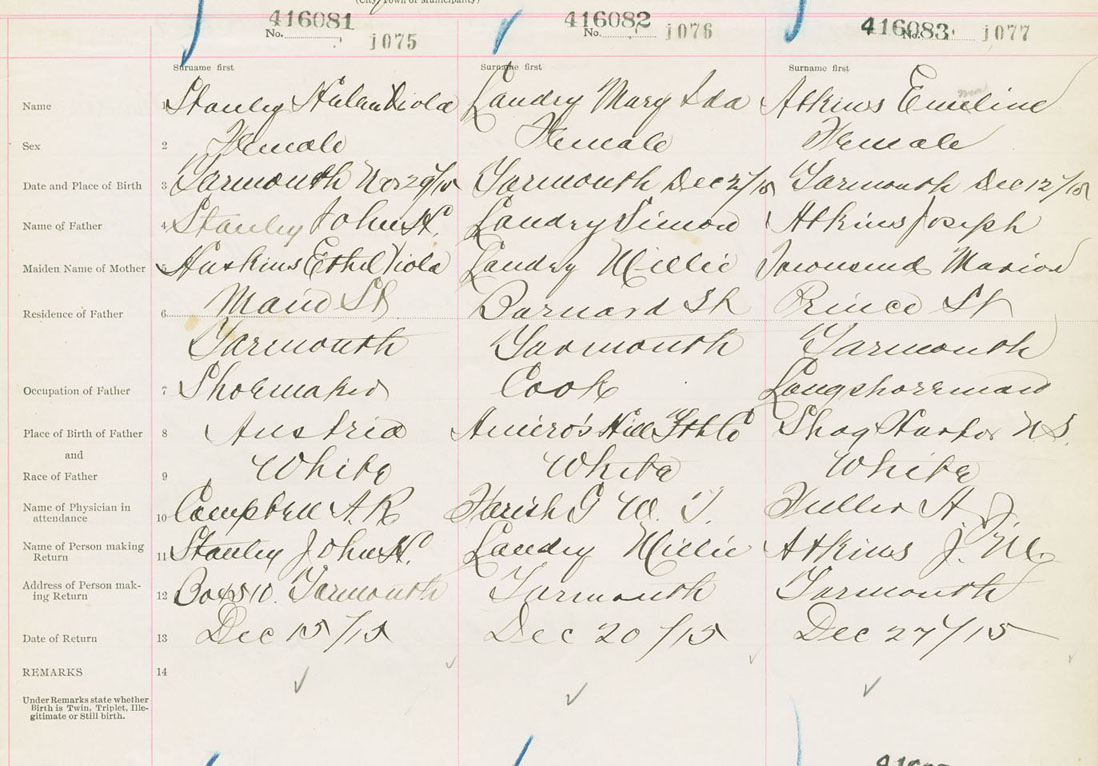 (City, Town or Municipality)
416081 416082 416083
No. 1075 No. 1076 No. 1077
Surname first Surname first Surname first
Name 1 Stanley Viola Landry Mary Ida Atkins Emeline
Sex 2 Female Female Female
Date and Place of Birth 3 Yarmouth Nov 29/15 Yarmouth Dec 2/15 Yarmouth Dec 12/15
Name of Father 4 Stanley John H. Landry Simon Atkins Joseph
Maiden Name of Mother 5 Huskins Ethel Viola Landry Millie Townsend Marion
Residence of Father 6 Main St Barnard St Prince St
Yarmouth Yarmouth Yarmouth
Occupation of Father 7 Shoemaker Cook Longshoreman
Place of Birth of Father 8 Austria Amiro's Hill Yth Co Shag Harbor N.S.
and
Race of Father 9 White White White
Name of Physician in
attendance 10 Campbell A.R. G W. T. Fuller A. J.
Name of Person making
Return 11 Stanley John H. Landry Millie Atkins J. M.
Address of Person mak-
ing Return 12 Box 510. Yarmouth Yarmouth Yarmouth
Date of Return 13 Dec 15/15 Dec 20/15 Dec 27/15
REMARKS 14
Under Remarks state whether
Birth is Twin, Triplet, Ille-
gitimate or Still birth.